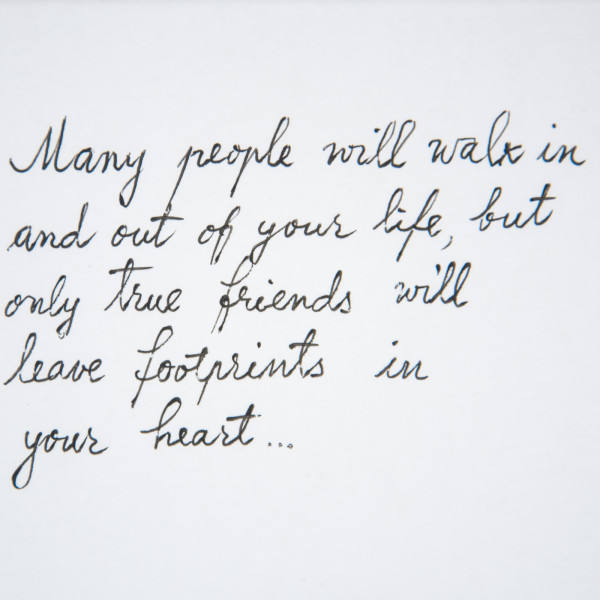 Many people will walk in
and out of your life, but
only true friends will
leave footprints in
your heart...